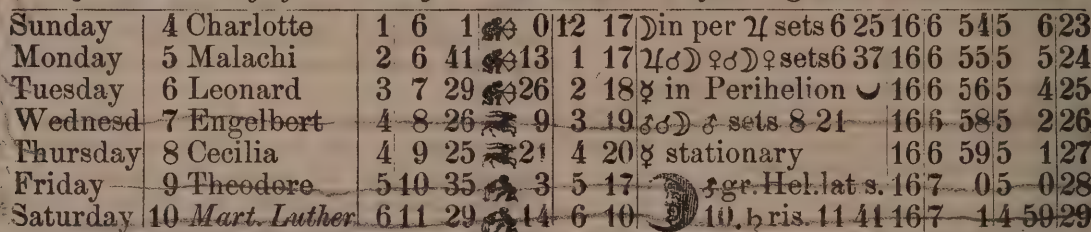 Sunday 4 Charlotte 1 6 1 0 12 17 ☽in per ♃ sets 6 25 16 6 54 5 6 23
Monday 5 Malachi 2 6 41 13 1 17 ♃☌☽ ♀☌☽ ♀ sets 6 37 16 6 55 5 5 24
Tuesday 6 Leonard 3 7 29 26 2 18 ☿ in Perihelion 16 6 56 5 4 25
Wednesd 7 Engelbert 4 8 26 9 3 19 ♂☌☽ ♂ sets 8 21 16 6 58 5 2 26
Thursday 8 Cecilia 4 9 25 21 4 20 ☿ stationary 16 6 59 5 1 27
Friday 9 Theodore 5 10 35 3 5 17 gr. Hel. lat s. 16 7 0 5 0 28
Saturday 10 Mart. Luther 6 11 29 14 6 10 10. ♄ ris. 11 41 16 7 1 4 59 29